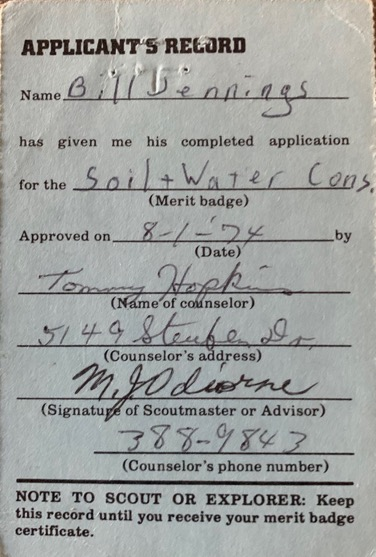 APPLICANT'S RECORD
Name Bill Jennings
has given me his completed application
for the Soil + Water Cons.
(Merit badge)
Approved on 8-1-74 by
(Date)
Tommy Hopkins
(Name of counselor)
5149 Steuben Dr.
(Counselor's address)
M.J. Odiorne
(Signature of Scoutmaster or Advisor)
388-9843
(Counselor's phone number)
NOTE TO SCOUT OR EXPLORER: Keep
this record until you receive your merit badge
certificate.